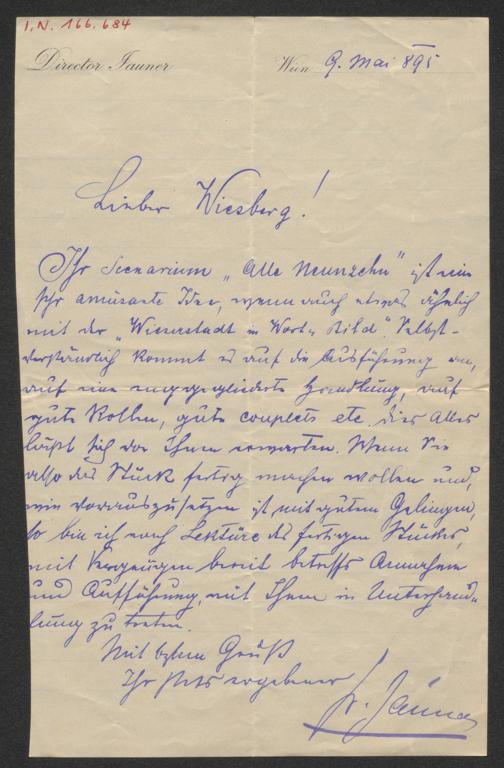 I.N. 166.684
Director Jauner
Wien 9. Mai 895
Lieber Wiesberg!
Ihr Scenarium „Alle Neunzehn" ist eine
sehr amüsante Idee, wenn auch etwas ähnlich
mit der „Wienerstadt in Wort u. Bild". Selbst-
verständlich kommt es auf die Ausführung an,
auf eine gegliederte Handlung, auf
gute Rollen, gute Couplets etc. dies Alles
läßt sich von Ihnen erwarten. Wenn Sie
also das Stück fertig machen wollen und,
wie vorauszusetzen ist mit gutem Gelingen,
so bin ich nach Lektüre des fertigen Stückes,
mit Vergnügen bereit betreffs Annahme
und Aufführung, mit Ihnen in Unterhand-
lung zu treten.
Mit Gruß
Ihr stets ergebener
Fr. Jauner